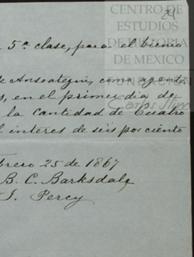 24
CENTRO DE
ESTUDIOS
DE HISTORIA
DE MEXICO
5ª clase, para el bienio
de Ansoategui, como agente
, en el primer dia de
la cantidad de Cuatro
interes de seis por ciento
Febrero 25 de 1867
B. C. Barksdale
S. Percy